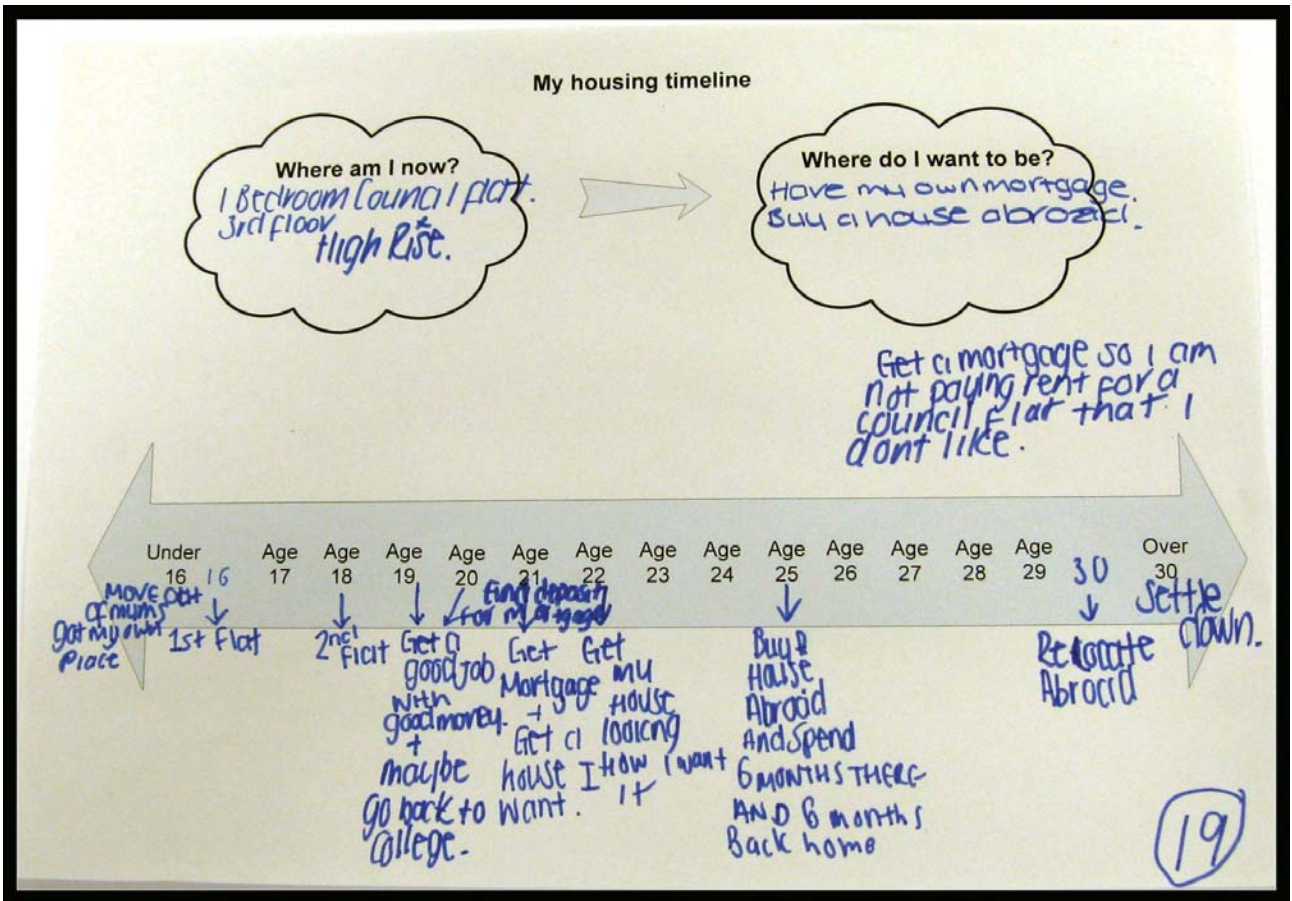 My housing timeline
Where am I now?
1 Bedroom Council flat.
3rd floor
High Rise.
Where do I want to be?
Have my own mortgage.
Buy a house abroad.
Get a mortgage so I am
not paying rent for a
council flat that I
dont like.
Under 16
16
Age 17
Age 18
Age 19
Age 20
Age 21
Age 22
Age 23
Age 24
Age 25
Age 26
Age 27
Age 28
Age 29
30
Over 30
Move out
of mums
got my own
Place
1st Flat
2nd
Flat
Get a
good job
with
good money.
+
maybe
go back to
College.
Find deposit
for mortgage
Get
Mortgage
+
Get a
house I
want.
Get
my
House
looking
How I want
it
Buy a
House
Abroad
And Spend
6 MONTHS THERE
AND 6 months
Back home
Relocate
Abroad
Settle
down.
19